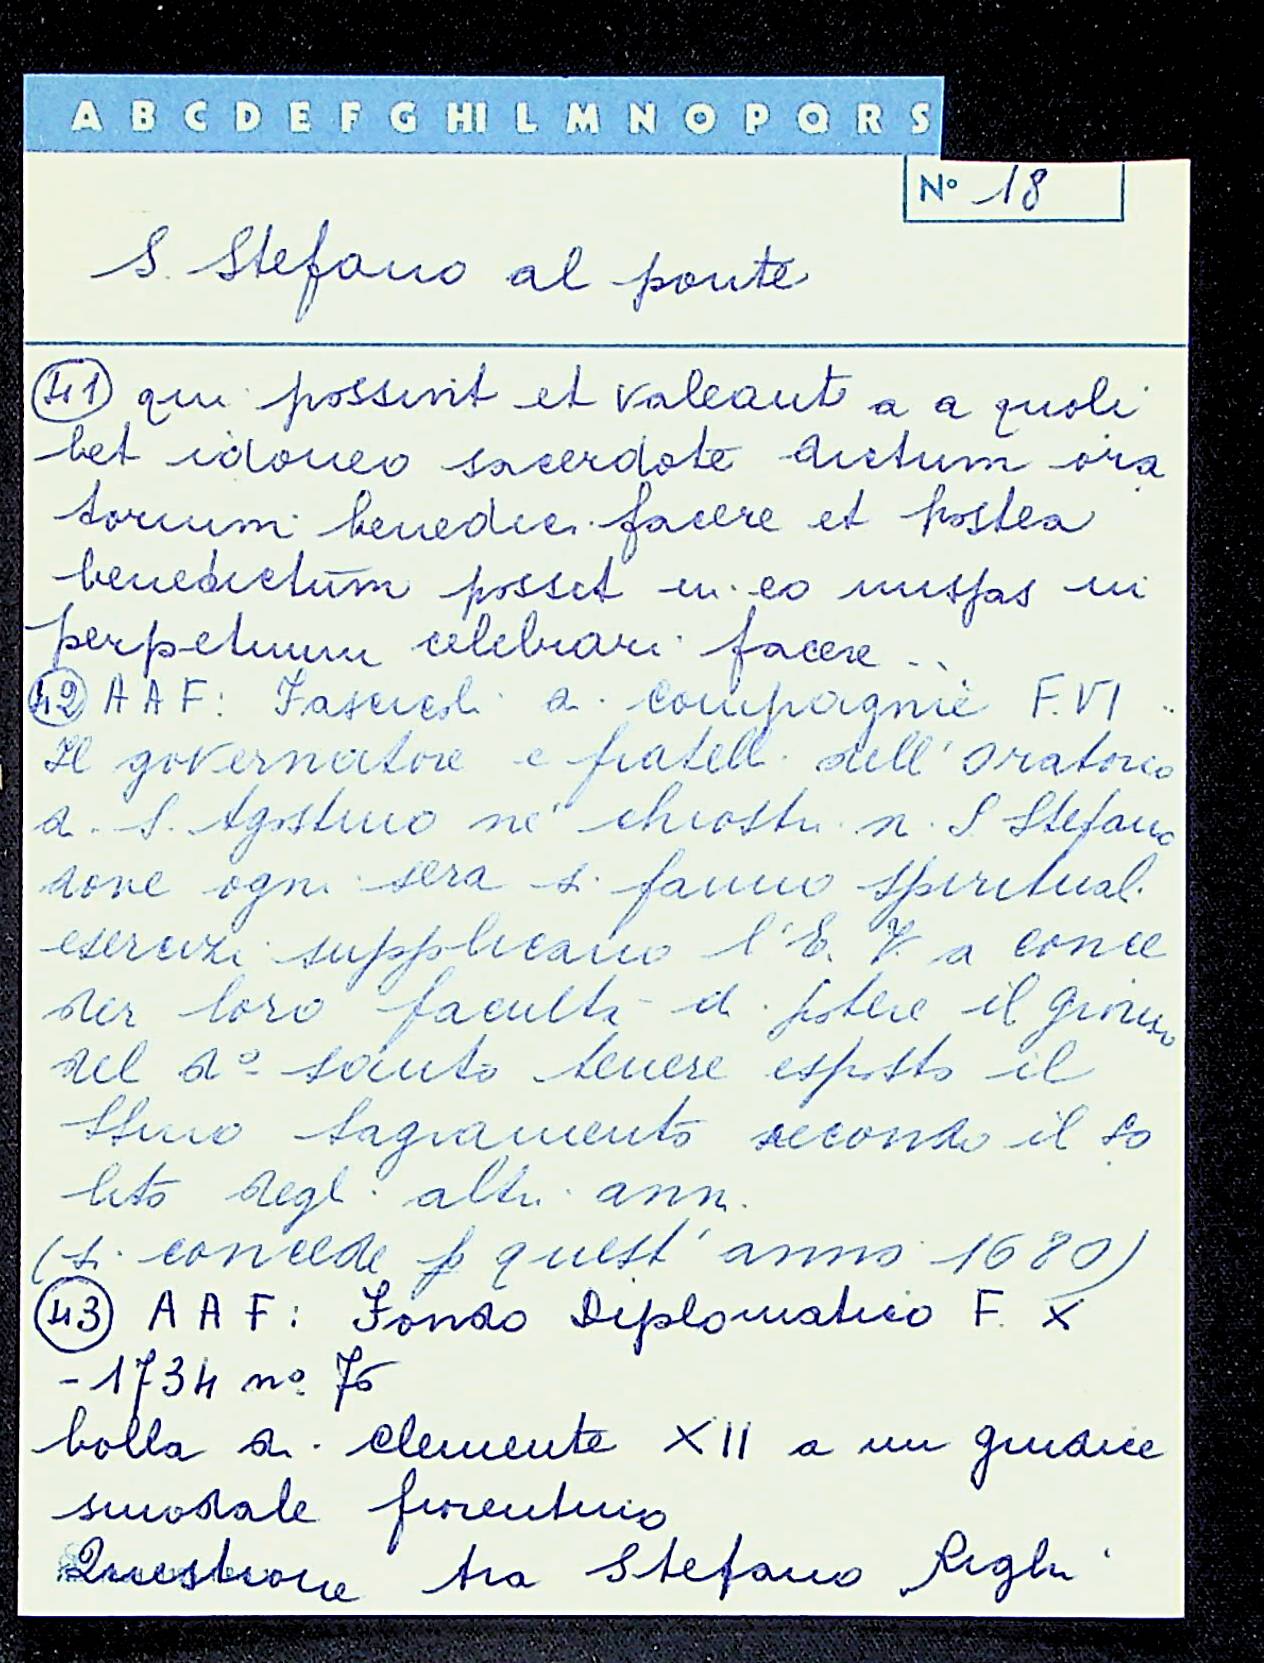 A B C D E F G HI L M N O P Q R S
N° 18
S. Stefano al ponte
41 qui possint et valeant a a quoli
bet idoneo sacerdote dictum ora
torium benedici facere et postea
benedictum posset in eo missas in
perpetuum celebrari facere ..
42 A A F: Fascicoli di compagnie F. VI ..
Il governatore e fratelli dell'oratorio
di S. Agostino ne' chiostri di S Stefano
dove ogni sera si fanno spirituali
esercizi supplicano l'E. V. a conce
der loro facultà di potere il giorno
del dº santo tenere esposto il
SSmo Sagramento secondo il so
lito degli altri anni
(si concede p quest'anno 1680)
43 A A F: Fondo Diplomatico F. X
- 1734 nº 76
bolla di Clemente XII a un giudice
sinodale fiorentino
Questione tra Stefano Righi